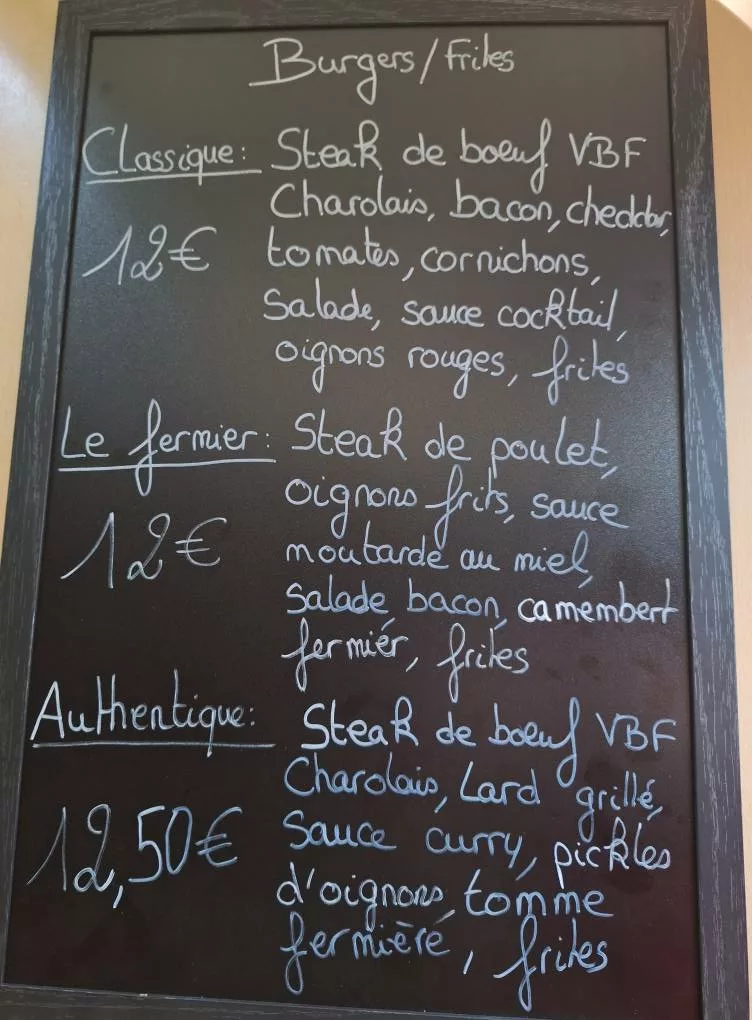 Burgers/Frites
Classique: Steak de boeuf VBF
Charolais, bacon, cheddar,
12€ tomates, cornichons,
Salade, sauce cocktail,
oignons rouges, frites
Le fermier: Steak de poulet,
oignons frits, sauce
12€ moutarde au miel,
salade, bacon, camembert
fermier, frites
Authentique: Steak de boeuf VBF
Charolais, Lard grillé,
12,50€ Sauce curry, pickles
d'oignons, tomme
fermière, frites